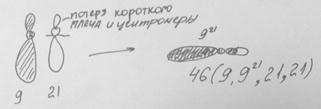 потеря короткого
плеча и центромеры
9²¹
9 21
46(9,9²¹,21,21)